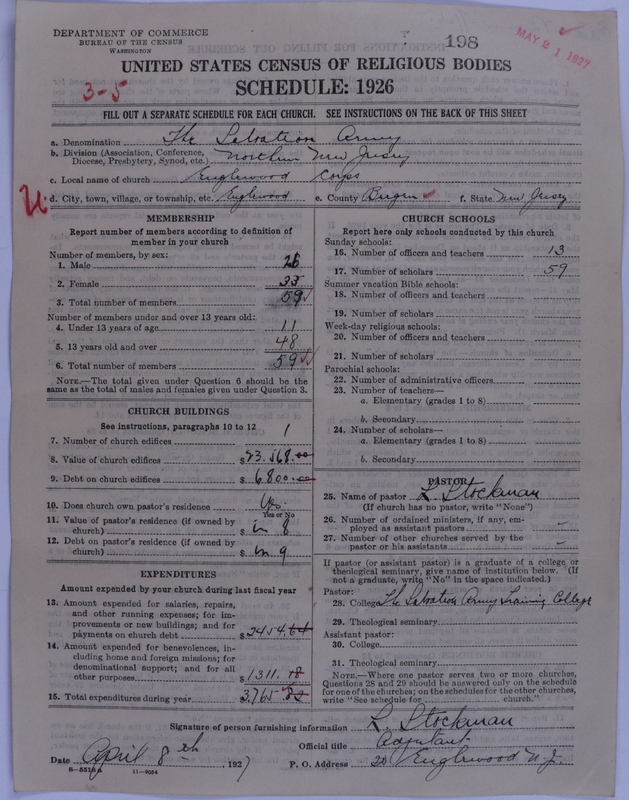 DEPARTMENT OF COMMERCE
BUREAU OF THE CENSUS
WASHINGTON
198
MAY 21 1927
UNITED STATES CENSUS OF RELIGIOUS BODIES
SCHEDULE: 1926
3-5
FILL OUT A SEPARATE SCHEDULE FOR EACH CHURCH. SEE INSTRUCTIONS ON THE BACK OF THIS SHEET
a. Denomination The Salvation Army
b. Division (Association, Conference, Diocese, Presbytery, Synod, etc.) Northern New Jersey
c. Local name of church Englewood Corps
d. City, town, village, or township, etc. Englewood e. County Bergen f. State New Jersey
MEMBERSHIP
Report number of members according to definition of
member in your church
Number of members, by sex:
1. Male 26
2. Female 33
3. Total number of members 59
Number of members under and over 13 years old:
4. Under 13 years of age 11
5. 13 years old and over 48
6. Total number of members 59
NOTE.—The total given under Question 6 should be the
same as the total of males and females given under Question 3.
CHURCH BUILDINGS
See instructions, paragraphs 10 to 12
7. Number of church edifices 1
8. Value of church edifices $
9. Debt on church edifices $ 6,800.00
10. Does church own pastor's residence Yes
Yes or No
11. Value of pastor's residence (if owned by
church) $ in 8
12. Debt on pastor's residence (if owned by
church) $ in 9
EXPENDITURES
Amount expended by your church during last fiscal year
13. Amount expended for salaries, repairs,
and other running expenses; for im-
provements or new buildings; and for
payments on church debt $ 2454.64
14. Amount expended for benevolences, in-
cluding home and foreign missions; for
denominational support; and for all
other purposes $ 1311.18
15. Total expenditures during year $ 3,765.82
CHURCH SCHOOLS
Report here only schools conducted by this church
Sunday schools:
16. Number of officers and teachers 13
17. Number of scholars 59
Summer vacation Bible schools:
18. Number of officers and teachers
19. Number of scholars
Week-day religious schools:
20. Number of officers and teachers
21. Number of scholars
Parochial schools:
22. Number of administrative officers
23. Number of teachers—
a. Elementary (grades 1 to 8)
b. Secondary
24. Number of scholars—
a. Elementary (grades 1 to 8)
b. Secondary
PASTOR
25. Name of pastor L. Stockman
(If church has no pastor, write "None")
26. Number of ordained ministers, if any, em-
ployed as assistant pastors –
27. Number of other churches served by the
pastor or his assistants –
If pastor (or assistant pastor) is a graduate of a college or
theological seminary, give name of institution below. (If
not a graduate, write "No" in the space indicated.)
Pastor:
28. College The Salvation Army Training College
29. Theological seminary
Assistant pastor:
30. College
31. Theological seminary
NOTE.—Where one pastor serves two or more churches,
Questions 28 and 29 should be answered only on the schedule
for one of the churches; on the schedules for the other churches,
write "See schedule for church."
Signature of person furnishing information L. Stockman
Official title Adjutant
Date April 8th, 1927 P. O. Address Englewood N.J.
11-9054